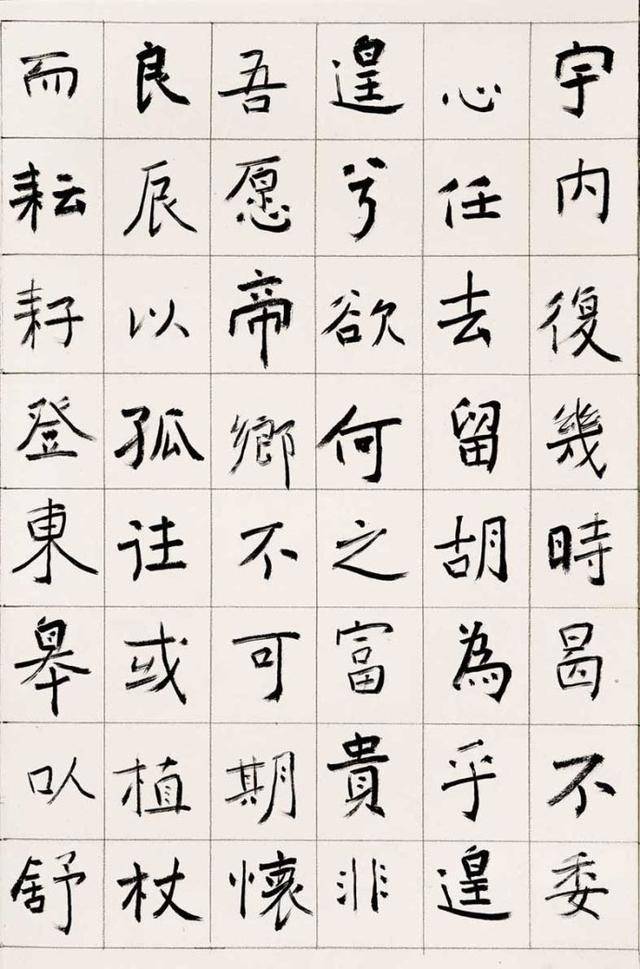 宇内復幾時曷不委
心任去留胡為乎遑
遑兮欲何之富貴非
吾愿帝鄉不可期懷
良辰以孤往或植杖
而耘耔登東皋以舒